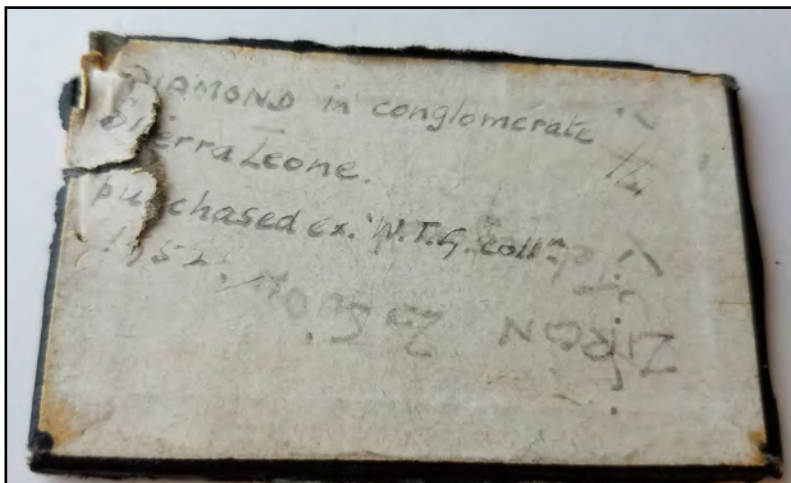 DIAMOND in conglomerate
Sierra Leone.
purchased ex. W.T.G. colln
1952.
ZIRCON